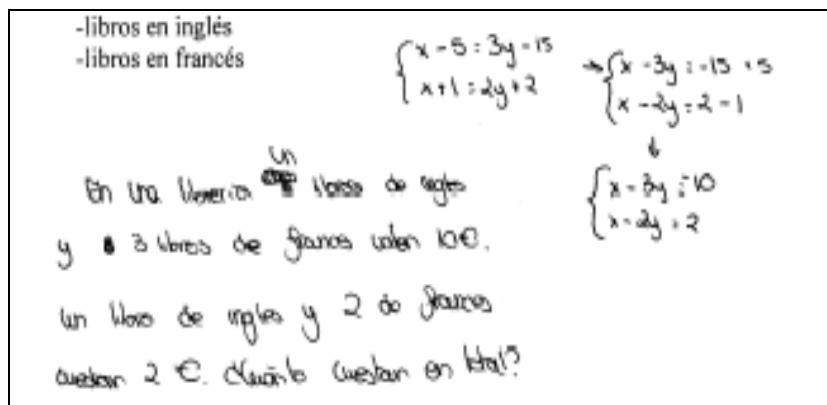 -libros en inglés
-libros en francés
x - 5 = 3y - 15
x + 1 = 2y + 2
→ x - 3y = -15 + 5
x - 2y = 2 - 1
↓
x - 3y = 10
x - 2y = 2
En una libreria un libros de ingles
y 3 libros de frances valen 10€.
Un libro de ingles y 2 de frances
cuestan 2 €. ¿Cuánto cuestan en total?